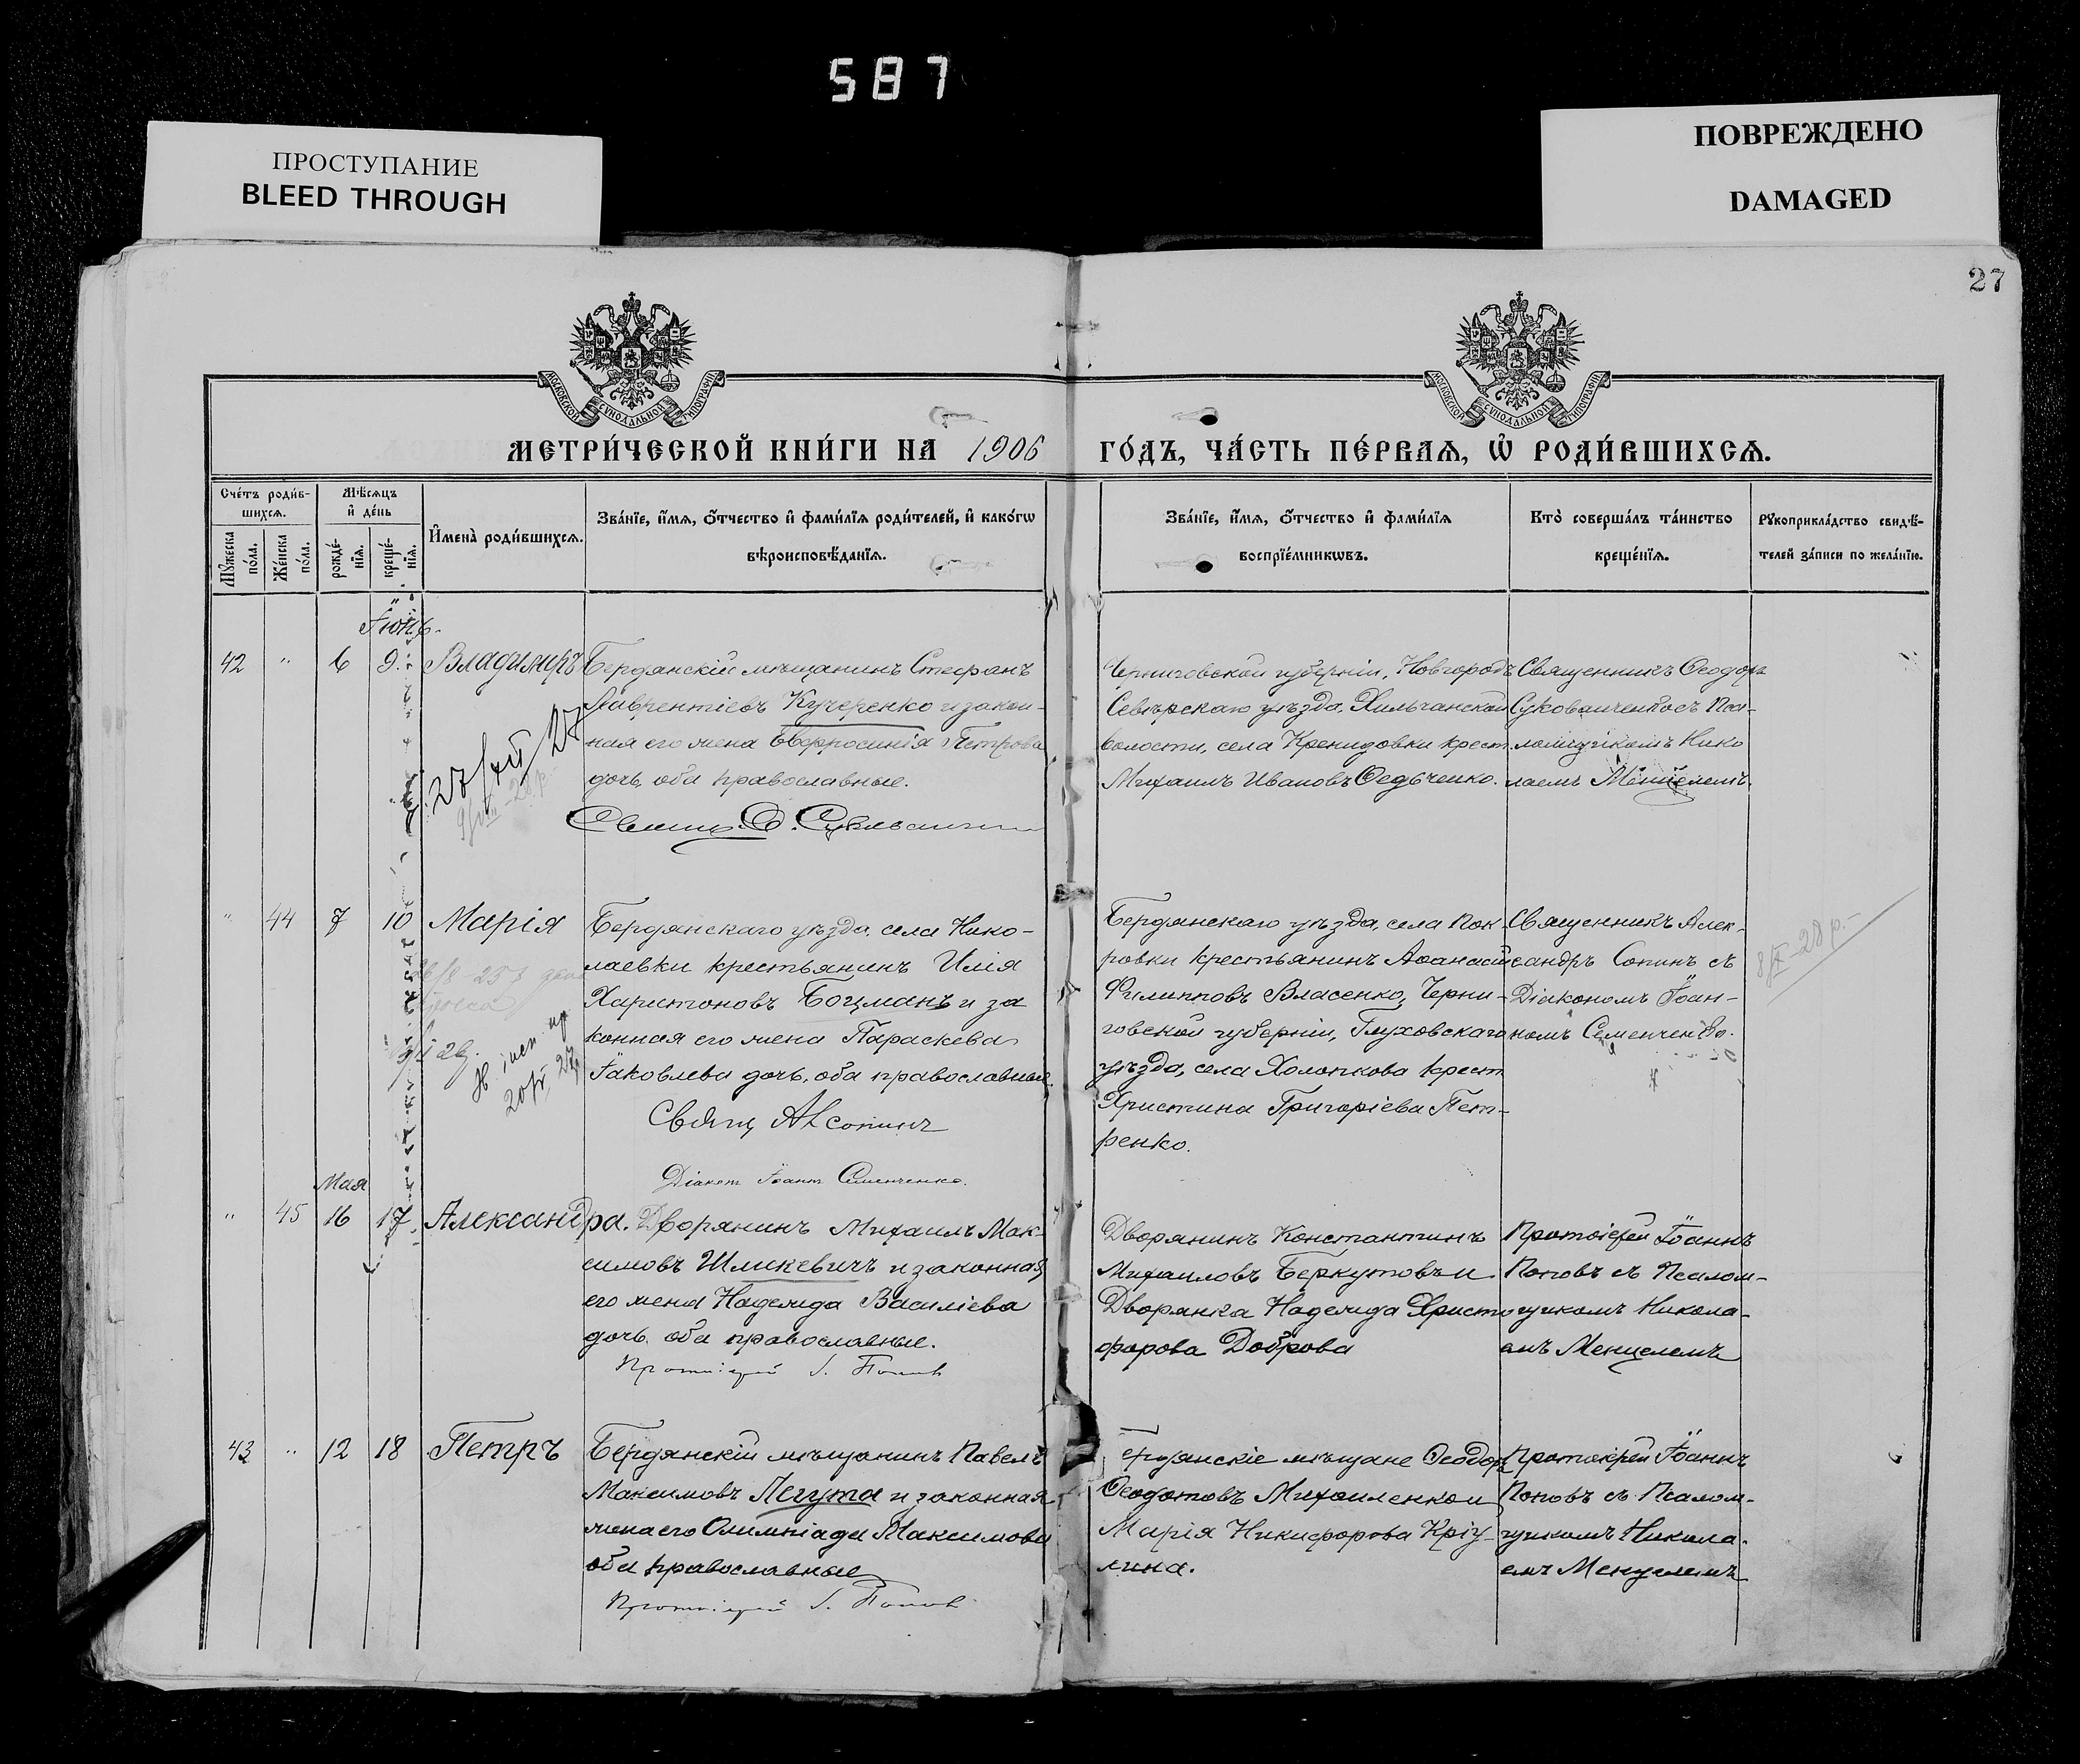 587
ПРОСТУПАНИЕ
BLEED THROUGH
ПОВРЕЖДЕНО
DAMAGED
27
МОСКОВСКОЙ СѴНОДАЛЬНОЙ ТИПОГРАФІИ
МОСКОВСКОЙ СѴНОДАЛЬНОЙ ТИПОГРАФІИ
МЕТРИ́ЧЕСКОЙ КНИ́ГИ НА 1906 ГО́ДЪ, ЧА́СТЬ ПЕ́РВАѦ, Ѽ РОДИ́ВШИХСѦ.
Сче́тъ роди́в-
шихсѧ.
Мꙋжеска по́ла.
Же́нска по́ла.
Мѣ́сѧцъ
и҆ де́нь
рожде́-
нїѧ.
креще́-
нїѧ.
И҆мена̀ роди́вшихсѧ.
Зва́нїе, и҆́мѧ, ѻ҆́тчество и҆ фами́лїѧ роди́телей, и҆ како́гѡ
вѣроисповѣ́данїѧ.
Зва́нїе, и҆́мѧ, ѻ҆́тчество и҆ фами́лїѧ
воспрїе́мникѡвъ.
Кто̀ соверша́лъ та́инство
креще́нїѧ.
Рꙋкоприкла́дство свидѣ́-
телей за́писи по жела́нїю.
Іюнь
42 " 6 9 Владимиръ
Бердянскій мѣщанинъ Стефанъ
Лаврентіевъ Кучеренко и закон-
ная его жена Евфросинія Петрова
дочь, оба православные.
27/XII 27
Черниговской губерніи, Новгородъ
Сѣверскаго уѣзда, Хильчанской
волости, села Кренидовки крест.
Михаилъ Ивановъ Ѳедьченко.
Священникъ Ѳеодоръ
Суковаиченко съ Пса-
ломщикомъ Нико
лаемъ Менцелемъ.
" 44 7 10 Марія
Бердянскаго уѣзда, села Нико-
лаевки крестьянинъ Илія
Харитоновъ Боцманъ и за
конная его жена Параскева
Іаковлева дочь, оба православные.
Свящ. А. Сопинъ
Діакон Іоанн Семенченко.
Бердянскаго уѣзда, села Пок-
ровки крестьянинъ Аѳанасій
Филипповъ Власенко, Черни-
говской губерніи, Глуховскаго
уѣзда, села Холопкова крест
Христина Григоріева Пет-
ренко.
Священникъ Алек-
сандръ Сопинъ съ
Діакономъ Іоан-
номъ Семенченко.
Мая
" 45 16 17 Александра.
Дворянинъ Михаилъ Мак-
симовъ Шликевичъ и законная
его жена Надежда Василіева
дочь, оба православные.
Протоіерей І. Попов
Дворянинъ Константинъ
Михаиловъ Беркутовъ и
Дворянка Надежда Христо
форова Доброва
Протоіерей Іоаннъ
Поповъ съ Псалом-
щикомъ Никола-
емъ Менцелемъ
43 " 12 18 Петръ
Бердянскій мѣщанинъ Павелъ
Максимовъ Легута и законная
жена его Олимпіада Максимова
оба православные
Протоіерей І. Попов
ердянскіе мѣщане Ѳеодоръ
Ѳеодотовъ Михаиленко и
Марія Никифорова Кріу-
лина.
Протоіерей Іоаннъ
Поповъ съ Псалом-
щикомъ Никола-
емъ Менцелемъ